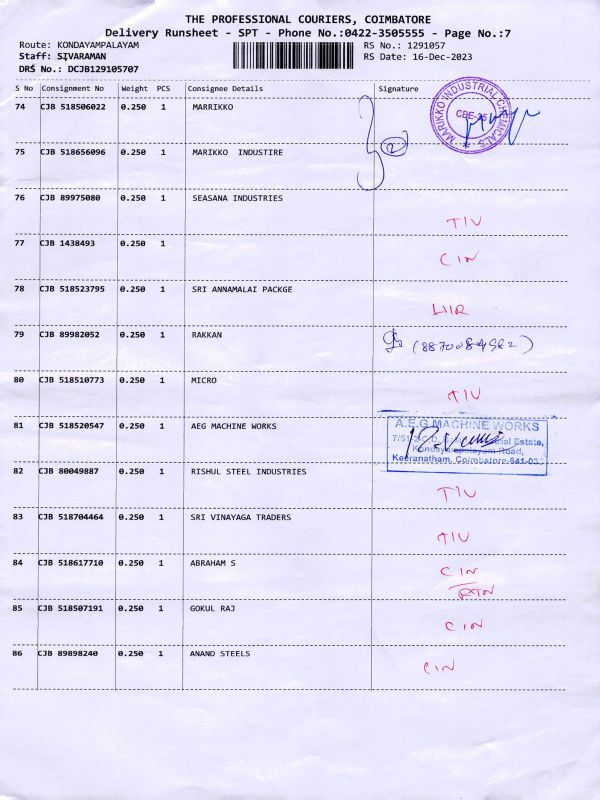 THE PROFESSIONAL COURIERS, COIMBATORE
Delivery Runsheet - SPT - Phone No.:0422-3505555 - Page No.:7
Route: KONDAYAMPALAYAM RS No.: 1291057
Staff: SIVARAMAN RS Date: 16-Dec-2023
DRS No.: DCJB129105707
S No Consignment No Weight PCS Consignee Details Signature
74 CJB 518506022 0.250 1 MARRIKKO
MARIKKO INDUSTRIAL CHEMICALS
75 CJB 518656096 0.250 1 MARIKKO INDUSTIRE 2
76 CJB 89975080 0.250 1 SEASANA INDUSTRIES
TIU
77 CJB 1438493 0.250 1
CIN
78 CJB 518523795 0.250 1 SRI ANNAMALAI PACKGE
79 CJB 89982052 0.250 1 RAKKAN
80 CJB 518510773 0.250 1 MICRO
TIU
81 CJB 518520547 0.250 1 AEG MACHINE WORKS
A.E.G MACHINE WORKS
Estate,
Road,
Keeranatham, Coimbatore-641-03
82 CJB 80049887 0.250 1 RISHUL STEEL INDUSTRIES
TIU
83 CJB 518704464 0.250 1 SRI VINAYAGA TRADERS
TIU
84 CJB 518617710 0.250 1 ABRAHAM S CIN
RTN
85 CJB 518507191 0.250 1 GOKUL RAJ
CIN
86 CJB 89898240 0.250 1 ANAND STEELS
CIN